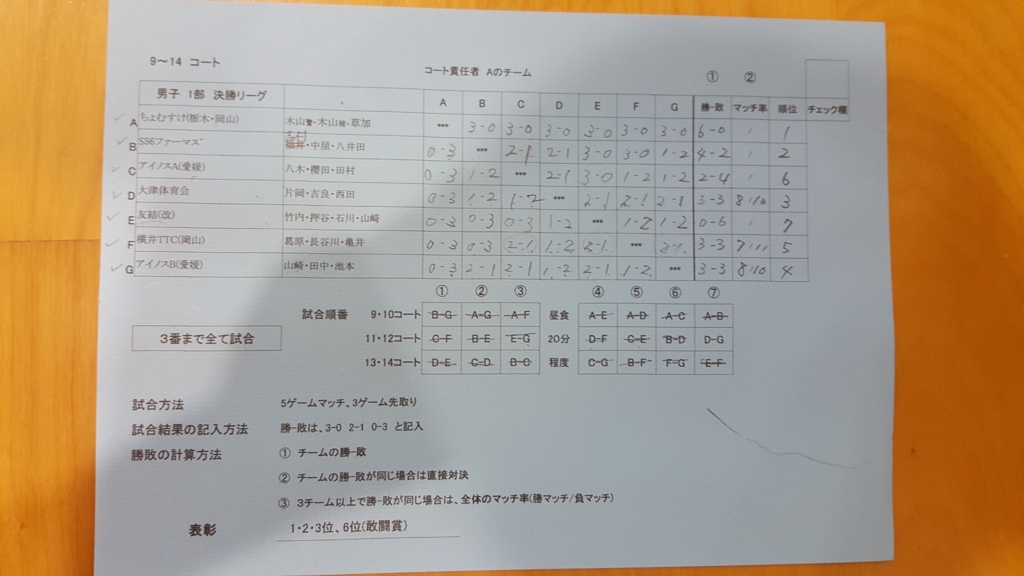 9～14 コート
コート責任者 Aのチーム
① ②
男子 1部 決勝リーグ A B C D E F G 勝-敗 マッチ率 順位 チェック欄
A ちょむすけ(栃木・岡山) 木山・木山・草加 *** 3-0 3-0 3-0 3-0 3-0 3-0 6-0 1
B S56ファーマズ ・中屋・八井田 0-3 *** 2-1 2-1 3-0 3-0 1-2 4-2 2
C アイノスA(愛媛) 八木・櫻田・田村 0-3 1-2 *** 2-1 3-0 1-2 1-2 2-4 6
D 大津体育会 片岡・吉良・西田 0-3 1-2 1-2 *** 2-1 2-1 2-1 3-3 8:10 3
E 友結(改) 竹内・押谷・石川・山崎 0-3 0-3 0-3 1-2 *** 1-2 1-2 0-6 7
F 横井TTC(岡山) 葛原・長谷川・亀井 0-3 0-3 2-1 1-2 2-1 *** 2-1 3-3 7:11 5
G アイノスB(愛媛) 山崎・田中・池本 0-3 2-1 2-1 1-2 2-1 1-2 *** 3-3 8:10 4
① ② ③ ④ ⑤ ⑥ ⑦
試合順番 9・10コート B-G A-G A-F 昼食 A-E A-D A-C A-B
3番まで全て試合 11・12コート C-F B-E E-G 20分 D-F C-E B-D D-G
13・14コート D-E C-D B-C 程度 C-G B-F F-G E-F
試合方法 5ゲームマッチ、3ゲーム先取り
試合結果の記入方法 勝-敗は、3-0 2-1 0-3 と記入
勝敗の計算方法 ① チームの勝-敗
② チームの勝-敗が同じ場合は直接対決
③ 3チーム以上で勝-敗が同じ場合は、全体のマッチ率(勝マッチ/負マッチ)
表彰 1・2・3位、6位(敢闘賞)